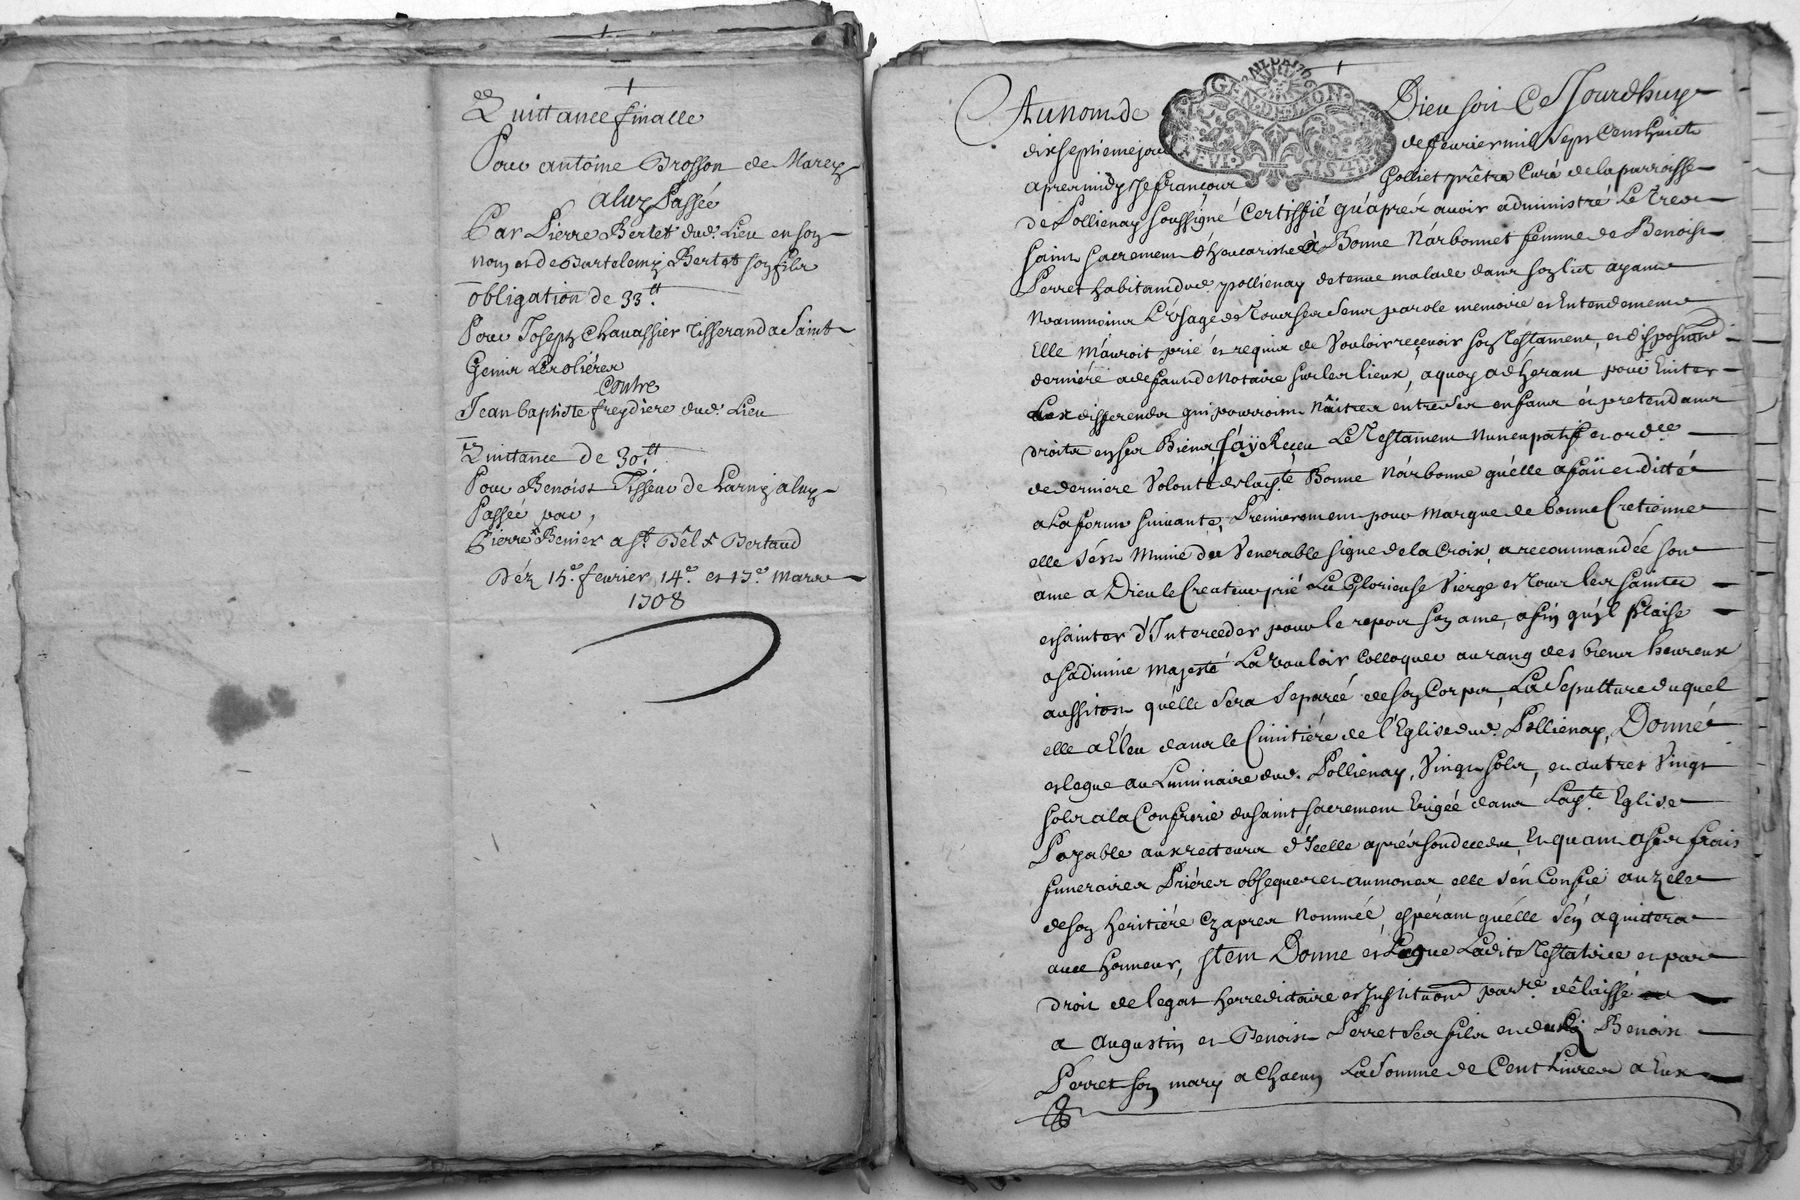 Quittance finalle
Pour antoine Brosson de Marez
a luy Passée
Par Pierre Bertet dud. Lieu en son
nom et de Bartelemy Bertet son fils
obligation de 33 tt
Pour Joseph Chauassier Tisserand a Saint
Genis Lerolières
Contre
Jean baptiste freydiere dud. Lieu
Quittance de 30 tt
Pour Benoist Tisseur de a luy
Passée par
Pierre Benier a st Bel & Bertaud
Déz 15e feurier, 14e et 17e Mars
1708
Au nom de Dieu soit CeJJourdhuy
dixseptieme jour de feurier mil sept Cens huict
apres midy Je françois Golliet prêtre Curé de la parroisse
de Pollienay soussigné Certiffié qu'aprés auoir administré Le Tres
saint sacrement d'heucaristie à Bonne Narbonnet femme de Benoist
Perret habitant dud pollienay detenue malade dans son lict ayant
Neanmoins L'Usage de Tous ses sens parole memoire et Entendement
Elle M'auroit prié et requis de Vouloir receuoir son Testament, et disposition
derniére a defaut de Notaire sur les lieux, a quoy adhérant pour Euiter
Les differends qui pourroint Naître entre ses enfans et pretendans
droits en ses Biens J'ay Reçeu Le Testament Nuncupatif et ordce
de derniere Volonté de lad.te Bonne Narbonne qu'elle a fait et ditté
a La forme suiuante, Premierement pour Marque de bonne Cretienne
elle s'est Munie du Venerable signe de la Croix, a recommandée son
ame a Dieu le Createur prié La Glorieuse Vierge et Tous les saintes
et saintes d'Interceder pour le repos son ame, afin qu'il Plaise
a sa diuine Majesté La vouloir Colloquer au rang des bien heureux
aussitost qu'elle sera separée de son Corps La sepulture duquel
elle a Eleu dans le Cimitiére de l'Eglise dud. Pollienay, Donné
et legue au Luminaire dud. Pollienay, Vingt solz, et autres Vingt
solz a la Confrerie du saint sacrement Erigée dans Lad.te Eglise
Payable aux recteurs d'Icelle aprés son deceds, Et quant a ses frais
funeraires Priéres obseques et aumones elle s'en Confie au zéle
de son heritiére cy apres Nommée, espérant qu'elle s'en aquittera
auec honneur, Item Donne et Legue Ladite Testatrice et par
droit de legat herreditaire et Institution parre. délaissé
a Augustin et Benoist Perret ses fils et dud. Benoist
Perret son mary a Chacun La somme de Cent Liures a Eux